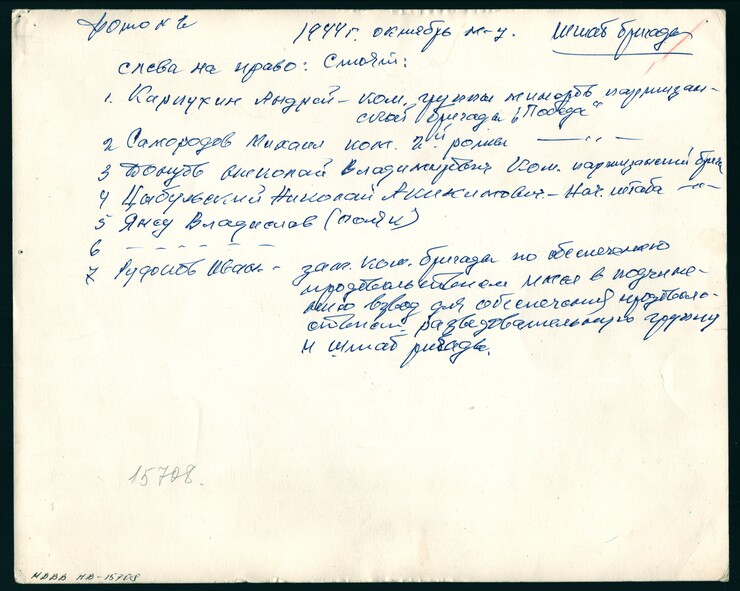 Фото №2 1944 г. октябрь м-ц. Штаб бригады
слева на право: Стоят:
1. Карпухин Андрей – ком. группы минеров партизан-
ской бригады "Победа"
2 Самородов Михаил ком. 2й роты — " —
3 Николай Владимирович Ком. партизанской бриг.
4 Цыбульский Николай Акимович – Нач. штаба — " —
5 Владислав (поляк)
6 – – – – – –
7 Иван – зам. ком. бригады по обеспечению
продовольствием имел в подчине-
нию взвод для обеспечения продоволь-
ствием разведовательную группу
и штаб
15708.
MDBB HD-15708